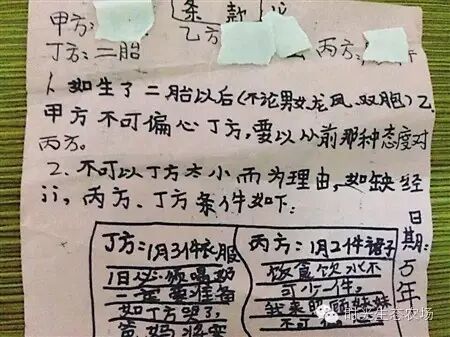 条款
甲方:
乙方
丙方:
丁方:二胎
1、如生了二胎以后(不论男女龙凤、双胞)乙
甲方不可偏心丁方,要以从前那种态度对
丙方。
2、不可以丁方太小而为理由,如缺经
济,丙方、丁方条件如下:
日期:5万年
丁方:1月3件衣服
1日必须喝奶
一定要准备
如丁方哭了,
丙方:1月2件裙子
饭食饮水不
可少一件。
我来照顾妹妹
不可
生态农场